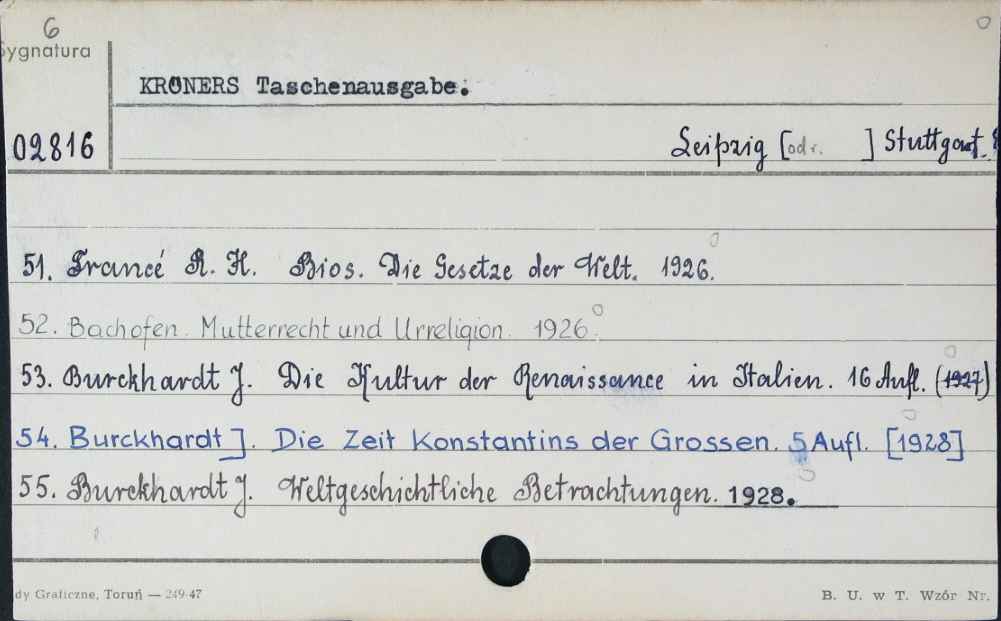 6
Sygnatura
KRÖNERS Taschenausgabe.
02816
Leipzig [odr. ] Stuttgart.
51. Francé R. H. Bios. Die Gesetze der Welt. 1926.
52. Bachofen. Mutterrecht und Urreligion. 1926.
53. Burckhardt J. Die Kultur der Renaissance in Italien. 16 Aufl. (1927)
54. Burckhardt J. Die Zeit Konstantins der Grossen. 5 Aufl. [1928]
55. Burckhardt J. Weltgeschichtliche Betrachtungen. 1928.
dy Graficzne, Toruń — 249-47
B. U. w T. Wzór Nr.